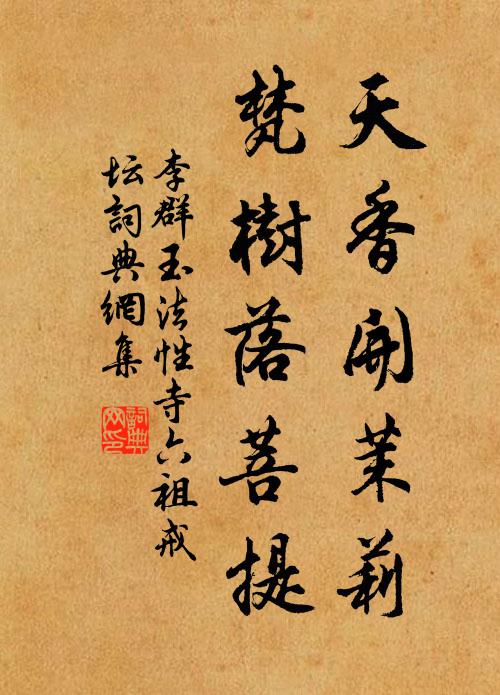 天香開茉莉
梵樹落菩提
李群玉法性寺六祖戒
坛詞典網集
詞典
网印